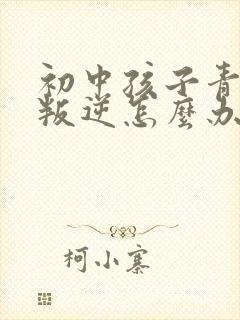 初中孩子青
叛逆怎麼办
柯小寨